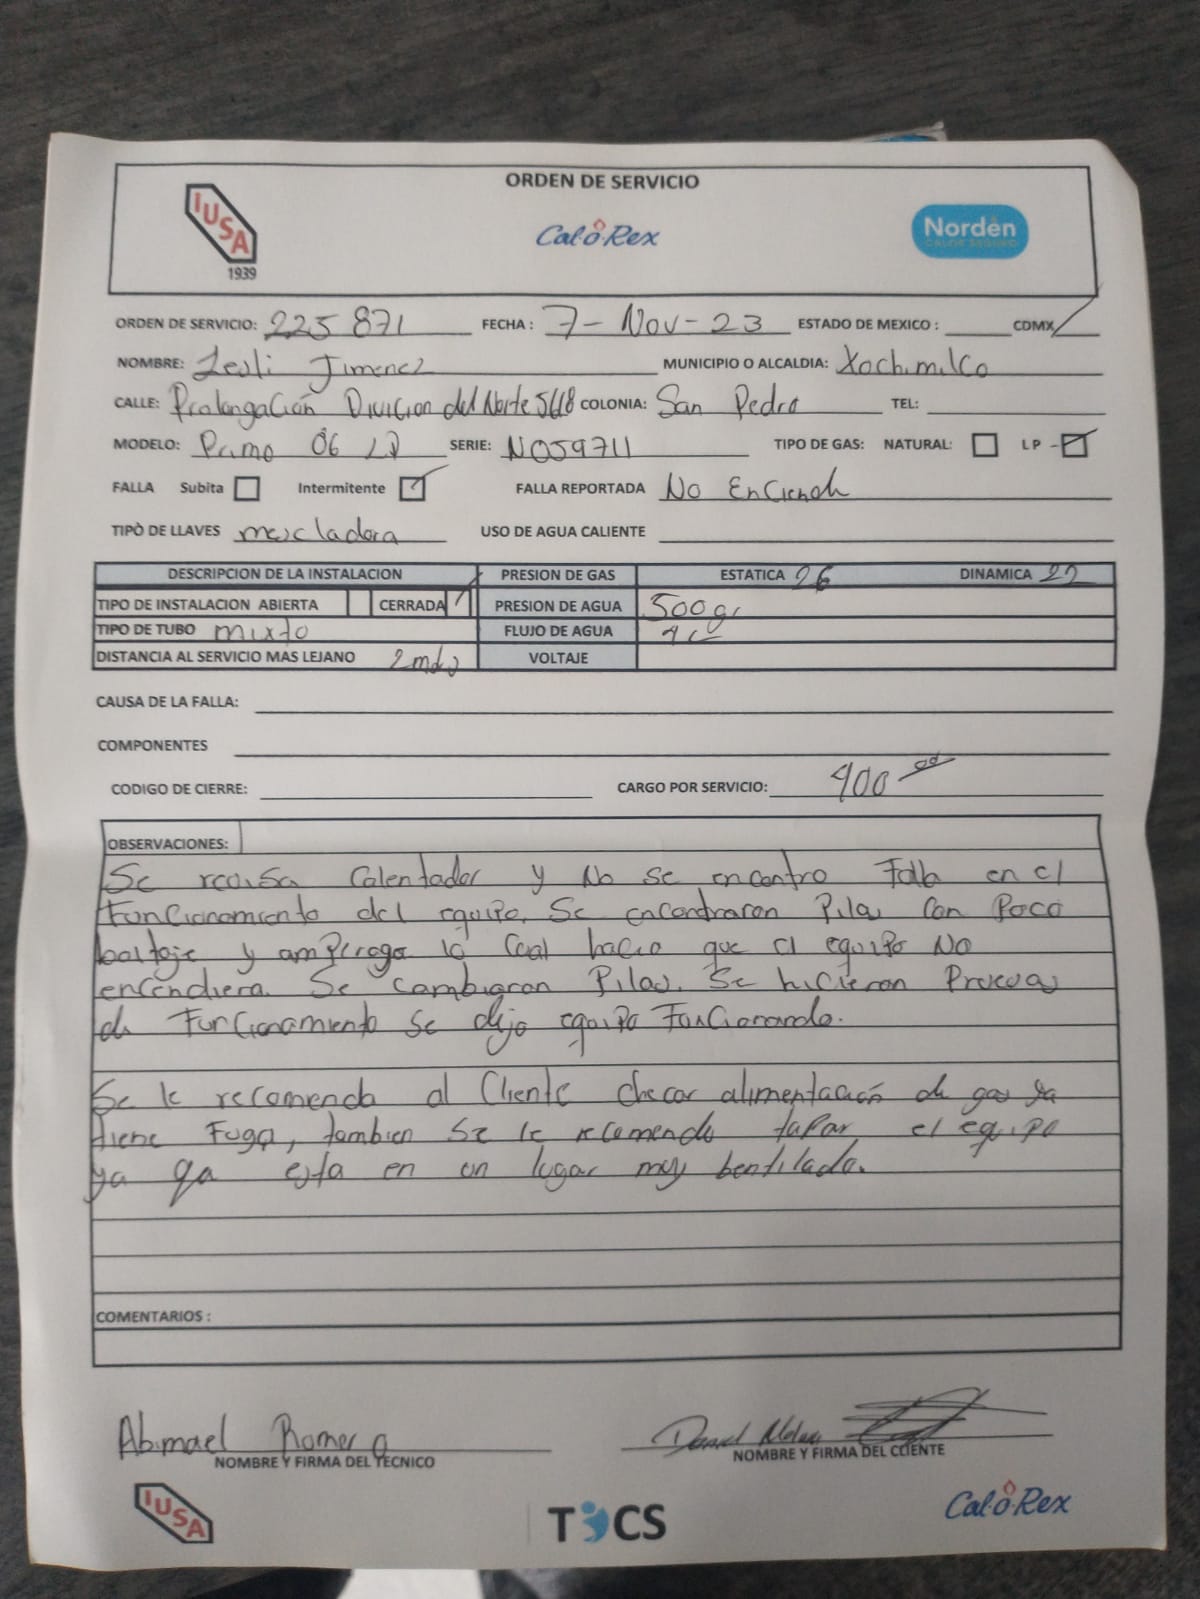 ORDEN DE SERVICIO
IUSA
1939
Cal-o-Rex
Nordën
CALOR SEGURO
ORDEN DE SERVICIO: 225 871 FECHA : 7-Nov-23 ESTADO DE MEXICO : CDMX /
NOMBRE: Lesli Jimenez MUNICIPIO O ALCALDIA: Xochimilco
CALLE: Prolongación Divicion del Norte 5618 COLONIA: San Pedro TEL:
MODELO: Primo 06 LP SERIE: NO59711 TIPO DE GAS: NATURAL: LP -
FALLA Subita Intermitente FALLA REPORTADA No Enciende
TIPÒ DE LLAVES mezcladora USO DE AGUA CALIENTE
DESCRIPCION DE LA INSTALACION PRESION DE GAS ESTATICA 26 DINAMICA 22
TIPO DE INSTALACION ABIERTA CERRADA / PRESION DE AGUA 500gr
TIPO DE TUBO mixto FLUJO DE AGUA
DISTANCIA AL SERVICIO MAS LEJANO VOLTAJE
CAUSA DE LA FALLA:
COMPONENTES
CODIGO DE CIERRE: CARGO POR SERVICIO: 400
OBSERVACIONES:
Se revisa Calentador y No se encontro Falla en el
Funcionamiento del equipo. Se encontraron Pilas Con Poco
boltaje y amperage lo Cual hacia que el equipo No
encendiera. Se Cambiaron Pilas. Se hicieron Pruevas
de Funcionamiento Se dejo equipo Funcionando.
Se le recomenda al Cliente checar alimentación de gas ya
tiene Fuga, tambien se le recomendo tapar el equipo
ya qa esta en un lugar muy bentilado.
COMENTARIOS :
Abimael Romero
NOMBRE Y FIRMA DEL TECNICO
Daniel
NOMBRE Y FIRMA DEL CLIENTE
IUSA
TICS
Cal-o-Rex